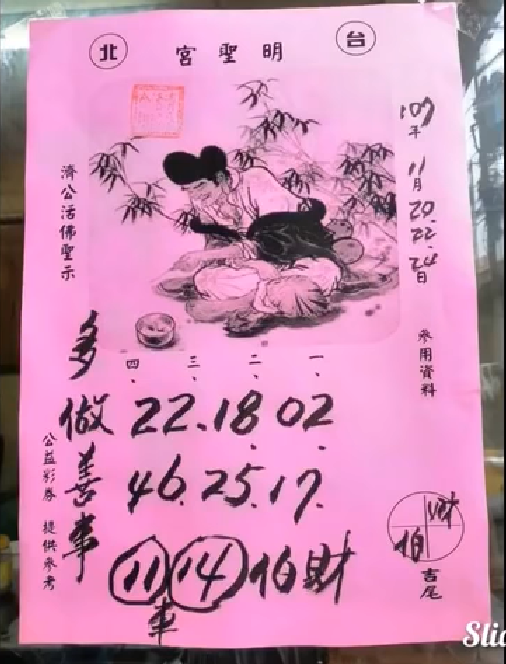 台北 明聖宮
107年 11月 20.22.24日
參用資料
濟公活佛聖示
一、 二、 三、 四、
02 18. 22.
17. 25. 46.
伯財 14 11 車
多做善事
公益彩券 提供參考
財 伯
吉尾
Slid